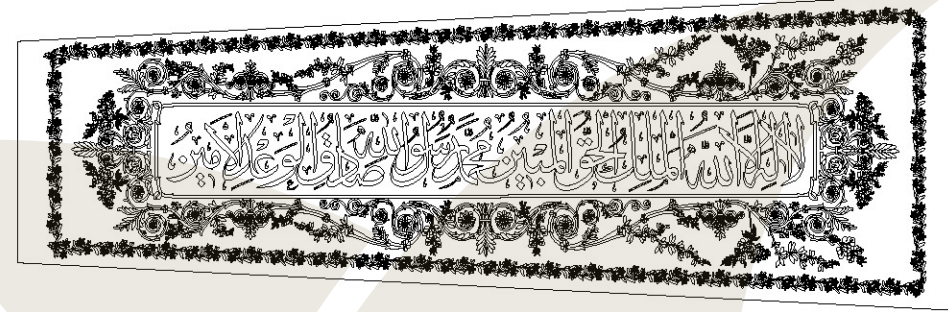 لا إله إلا الله الملك الحق المبين محمد رسول الله صادق الوعد الأمين